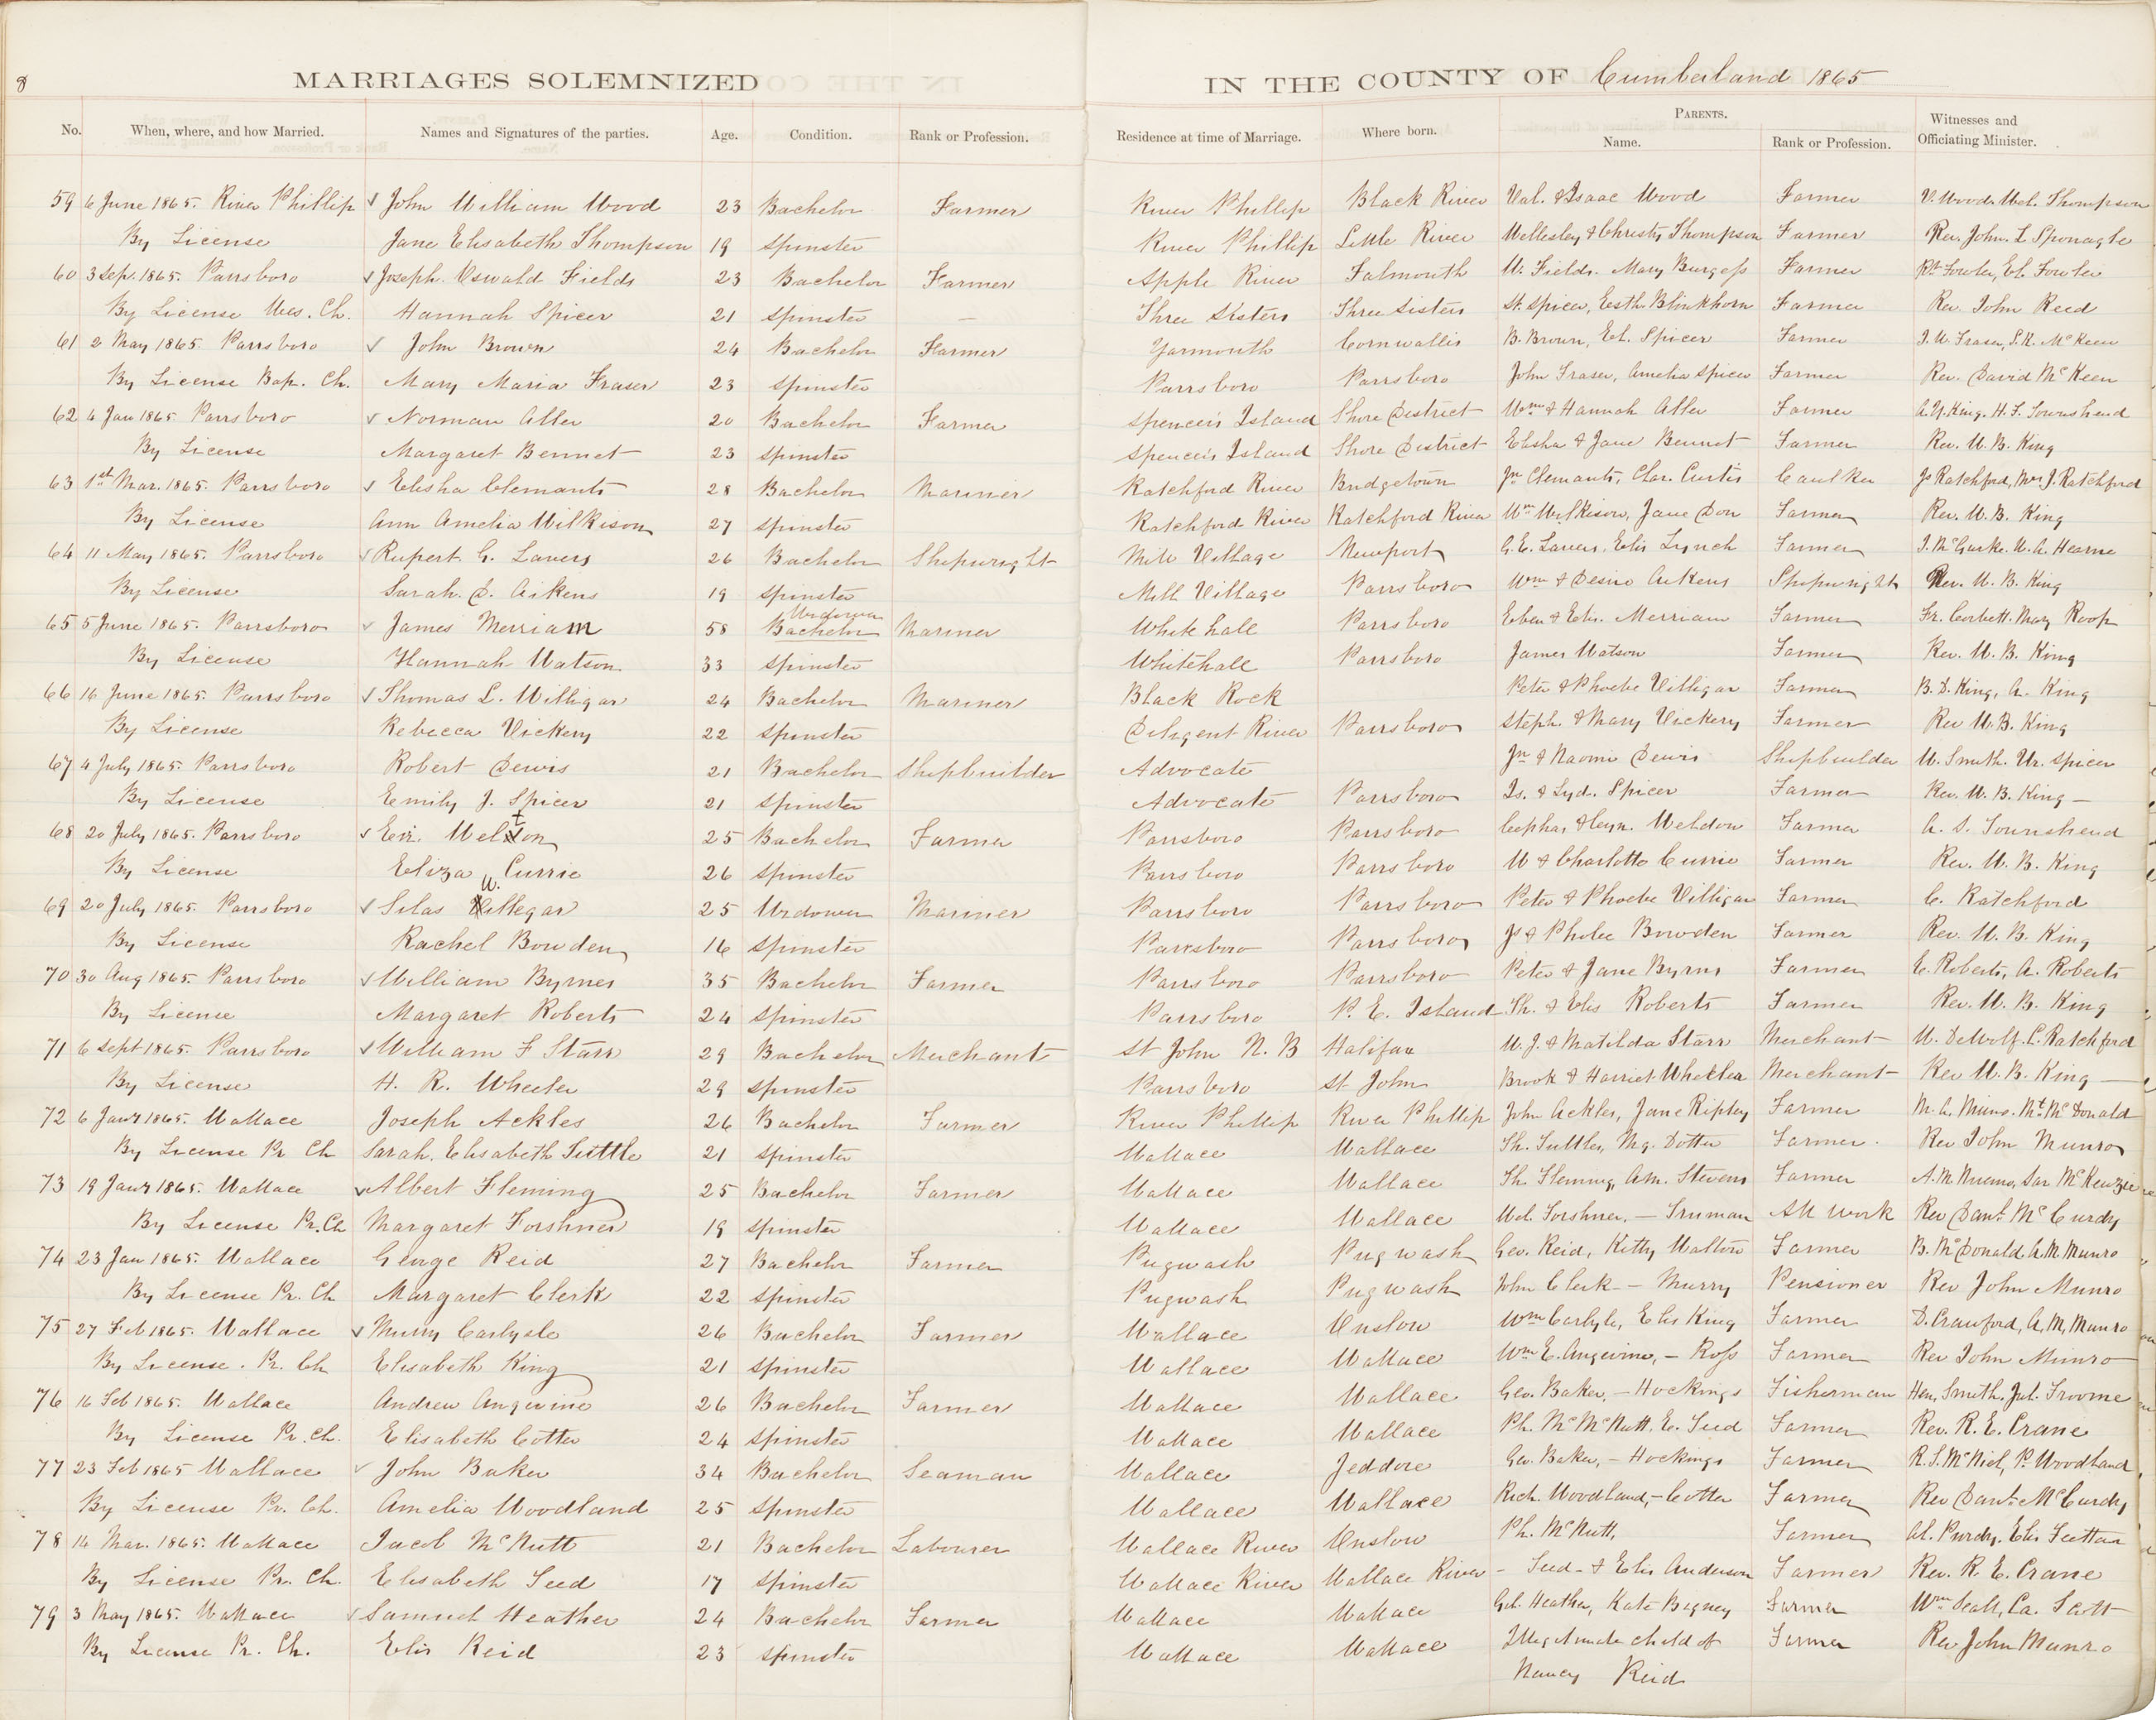 8
MARRIAGES SOLEMNIZED IN THE COUNTY OF Cumberland 1865
No. When, where, and how Married. Names and Signatures of the parties. Age. Condition. Rank or Profession. Residence at time of Marriage. Where born. PARENTS. Name. Rank or Profession. Witnesses and Officiating Minister.
59 6 June 1865. River Phillip √ John William Wood 23 Bachelor Farmer River Phillip Black River Val. & Isaac Wood Farmer V. Wood. Wel. Thompson
By License Jane Elisabeth Thompson 19 Spinster River Phillip Little River Wellesley & Christy Thompson Farmer Rev. John L Sponagle
60 3 Sep. 1865. Parrsboro √ Joseph Oswald Fields 23 Bachelor Farmer Apple River Falmouth W. Fields. Mary Burgess Farmer Rt Fowler, El. Fowler
By License Wes. Ch. Hannah Spicer 21 Spinster — Three Sisters Three Sisters St. Spicer, Esth. Blinkhorn Farmer Rev. John Reed
61 2 May 1865. Parrsboro √ John Brown 24 Bachelor Farmer Yarmouth Cornwallis B. Brown, El. Spicer Farmer J. W. Fraser, S. R. McKeen
By License Bap. Ch. Mary Maria Fraser 23 Spinster Parrsboro Parrsboro John Fraser, Amelia Spicer Farmer Rev. David McKeen
62 4 Jan 1865. Parrsboro √ Norman Allen 20 Bachelor Farmer Spencer's Island Shore District Wm & Hannah Allen Farmer A. N. King. H. F. Townshend
By License Margaret Bennet 23 Spinster Spencer's Island Shore District Elisha & Jane Bennet Farmer Rev. W. B. King
63 1st Mar. 1865. Parrsboro √ Elisha Clemants 28 Bachelor Mariner Ratchford River Bridgetown Jn Clemants, Char. Curtis Caulker Js Ratchford, Mrs J. Ratchford
By License Ann Amelia Wilkison 27 Spinster Ratchford River Ratchford River Wm Wilkison, Jane Don Farmer Rev. W. B. King
64 11 May 1865. Parrsboro √ Rupert G. Lavers 26 Bachelor Shipwright Mill Village Newport G. E. Lavers, Elis Lynch Farmer J. McGurke. W. A. Hearne
By License Sarah. D. Aikens 19 Spinster Mill Village Parrsboro Wm & Desire Aikens Shipwright Rev. W. B. King
65 5 June 1865. Parrsboro √ James Merriam 58 Widower Bachelor Mariner Whitehall Parrsboro Eben & Elis. Merriam Farmer Fr. Corbett. Mary Roop
By License Hannah Watson 33 Spinster Whitehall Parrsboro James Watson Farmer Rev. W. B. King
66 16 June 1865. Parrsboro √ Thomas L. Willigar 24 Bachelor Mariner Black Rock Peter & Phoebe Villigar Farmer B. D. King, A. King
By License Rebecca Vickery 22 Spinster Diligent River Parrsboro Steph. & Mary Vickery Farmer Rev W. B. King
67 4 July 1865. Parrsboro Robert Dewis 21 Bachelor Shipbuilder Advocate Jn & Naomi Dewis Shipbuilder W. Smith. Wr. Spicer
By License Emily J. Spicer 21 Spinster Advocate Parrsboro Is. & Lyd. Spicer Farmer Rev. W. B. King —
68 20 July 1865. Parrsboro √ Eir. Welton 25 Bachelor Farmer Parrsboro Parrsboro Cephas & Cyn. Weldon Farmer A. S. Townshend
By License Eliza Currie 26 Spinster Parrsboro Parrsboro W & Charlotte Currie Farmer Rev. W. B. King
69 20 July 1865. Parrsboro √ Silas Willegar 25 Widower Mariner Parrsboro Parrsboro Peter & Phoebe Villigar Farmer C. Ratchford
By License Rachel Bowden 16 Spinster Parrsboro Parrsboro Js & Phobe Bowden Farmer Rev. W. B. King
70 30 Aug 1865. Parrsboro √ William Byrnes 35 Bachelor Farmer Parrsboro Parrsboro Peter & Jane Byrns Farmer E. Roberts, A. Roberts
By License Margaret Roberts 24 Spinster Parrsboro P. E. Island Th. & Elis Roberts Farmer Rev. W. B. King
71 6 Sept 1865. Parrsboro √ William F Starr 29 Bachelor Merchant St John N. B Halifax W. J. & Matilda Starr Merchant W. DeWolf. C. Ratchford
By License H. R. Wheeler 29 Spinster Parrsboro St. John Brook & Harriet Wheeler Merchant Rev W. B. King —
72 6 Jany 1865. Wallace Joseph Ackles 26 Bachelor Farmer River Phillip River Phillip John Ackles, Jane Ripley Farmer M. A. Munro. Mt. McDonald
By License Pr Ch Sarah. Elisabeth Tuttle 21 Spinster Wallace Wallace Th. Tuttle, Mg. Dotter Farmer. Rev John Munro
73 19 Jany 1865. Wallace √ Albert Fleming 25 Bachelor Farmer Wallace Wallace Th. Fleming, Am. Stevens Farmer A. M. Munro, Sar McKenzie
By License Pr. Ch Margaret Forshner 19 Spinster Wallace Wallace Wel. Forshner, — Truman All Work Rev Danl. McCurdy
74 23 Jan 1865. Wallace George Reid 27 Bachelor Farmer Pugwash Pugwash Geo. Reid, Kitty Walton Farmer B. McDonald. A. M. Munro
By License Pr. Ch Margaret Clerk 22 Spinster Pugwash Pugwash John Clerk — Murry Pensioner Rev John Munro
75 27 Feb 1865. Wallace √ Murry Carlysle 26 Bachelor Farmer Wallace Onslow Wm Carlyle, Elis King Farmer D. Crawford, A. M. Munro
By License. Pr. Ch Elisabeth King 21 Spinster Wallace Wallace Wm E. Angevine, — Ross Farmer Rev John Munro
76 16 Feb 1865. Wallace Andrew Angevine 26 Bachelor Farmer Wallace Wallace Geo. Baker, — Hockings Fisherman Hen. Smith, Jul. Troome
By License Pr. Ch. Elisabeth Cotter 24 Spinster Wallace Wallace Ph. Mc McNutt. E. Seed Farmer Rev. R. E. Crane
77 23 Feb 1865 Wallace √ John Baker 34 Bachelor Seaman Wallace Jeddore Geo. Baker, — Hockings Farmer R. S. McNiel, P. Woodland
By License Pr. Ch. Amelia Woodland 25 Spinster Wallace Wallace Rich. Woodland, — Cotter Farmer Rev Danl. McCurdy
78 14 Mar. 1865. Wallace Jacob McNutt 21 Bachelor Labourer Wallace River Onslow Ph. McNutt, Farmer Al. Purdy. Elis Teetton
By License Pr. Ch. Elisabeth Seed 17 Spinster Wallace River Wallace River — Seed — & Elis Anderson Farmer Rev. R. E. Crane
79 3 May 1865. Wallace √ Samuel Heather 24 Bachelor Farmer Wallace Wallace Gel. Heather, Kate Bigney Farmer Wm Scott, Ca. Scott
By License Pr. Ch. Elis Reid 23 Spinster Wallace Wallace Illegitimate child of Farmer Rev John Munro
Nancy Reid